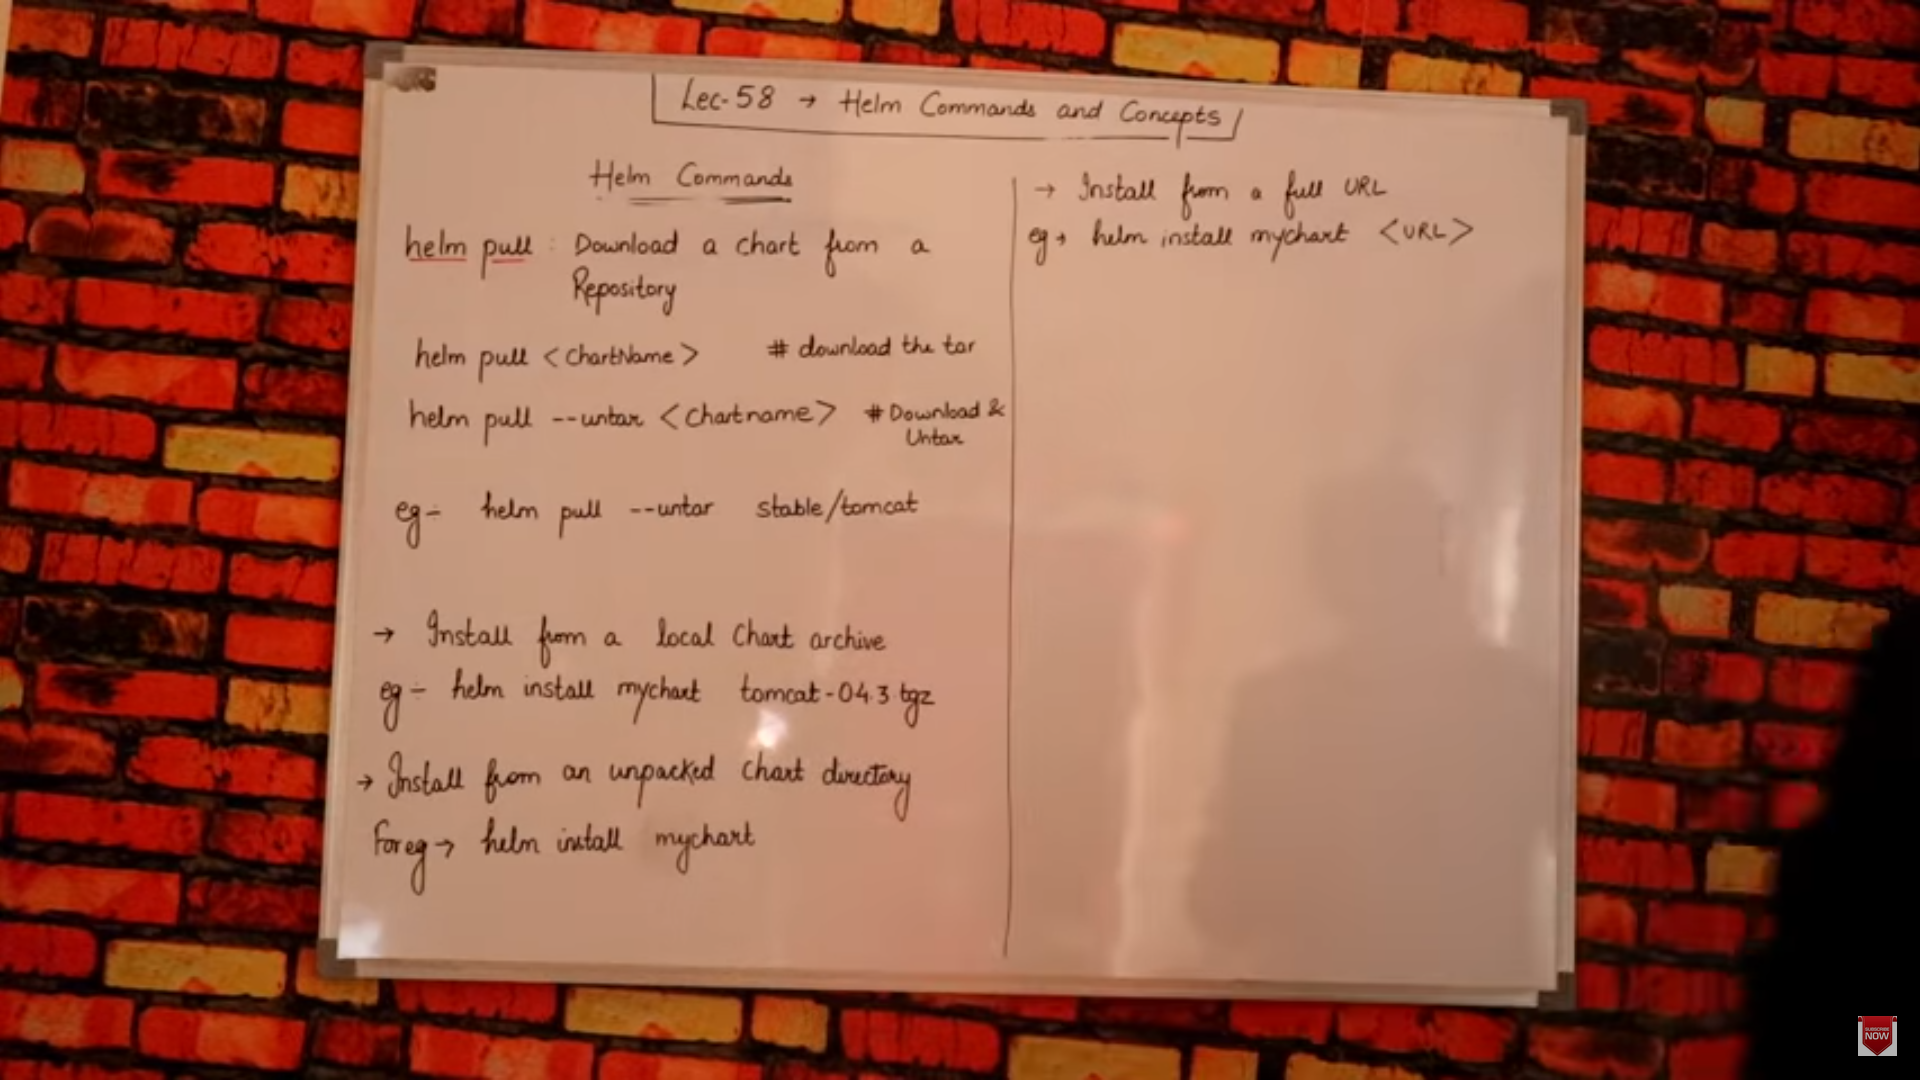 Lec-58 → Helm Commands and Concepts
Helm Commands
helm pull : Download a chart from a
Repository
helm pull <ChartName> # download the tar
helm pull --untar <Chartname> # Download &
Untar
eg- helm pull --untar stable/tomcat
→ Install from a local Chart archive
eg- helm install mychart tomcat-04.3 tgz
→ Install from an unpacked Chart directory
For eg → helm install mychart
→ Install from a full URL
eg → helm install mychart <URL>
SUBSCRIBE
NOW